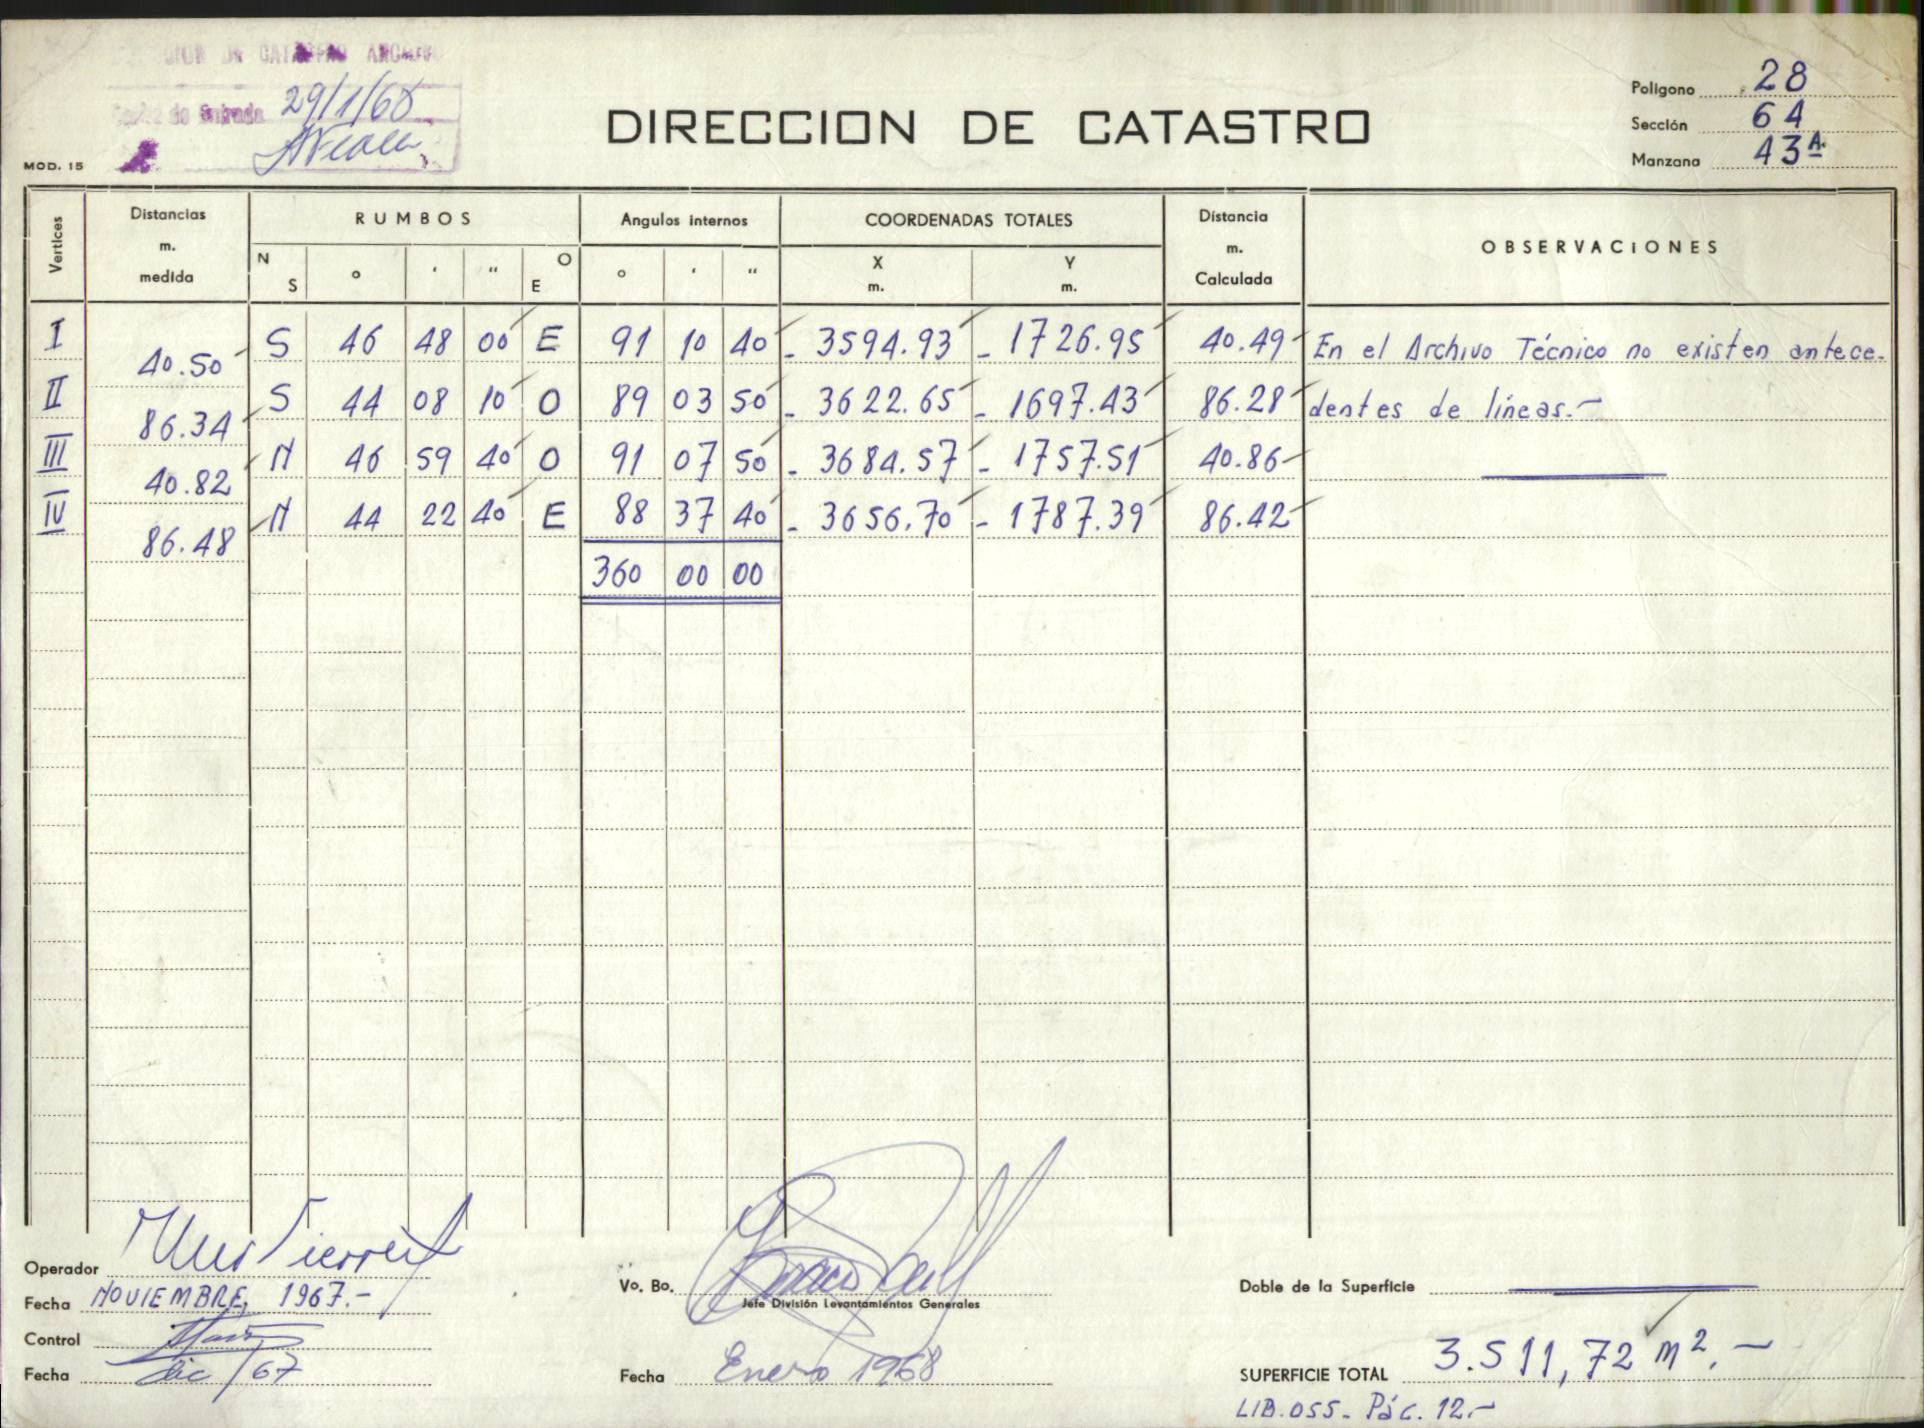 CATASTRO ARCHIVO
de Entrada 29/1/68
MOD. 15
DIRECCION DE CATASTRO
Poligono 28
Sección 64
Manzana 43A.
Vertices
Distancias m. medida
RUMBOS
N S ° ' " O E
Angulos internos
° ' "
COORDENADAS TOTALES
X m. Y m.
Distancia m. Calculada
OBSERVACIONES
I S 46 48 00 E 91 10 40 - 3594.93 - 1726.95 40.49 En el Archivo Técnico no existen antece-
40.50
II S 44 08 10 O 89 03 50 - 3622.65 - 1697.43 86.28 dentes de líneas.-
86.34
III N 46 59 40 O 91 07 50 - 3684.57 - 1757.51 40.86
40.82
IV N 44 22 40 E 88 37 40 - 3656.70 - 1787.39 86.42
86.48
360 00 00
Operador
Fecha NOVIEMBRE, 1967.-
Control
Fecha dic/67
Vo. Bo.
Jefe División Levantamientos Generales
Fecha Enero 1968
Doble de la Superficie
SUPERFICIE TOTAL 3.511,72 m2.-
LIB.055- Pág. 12.-